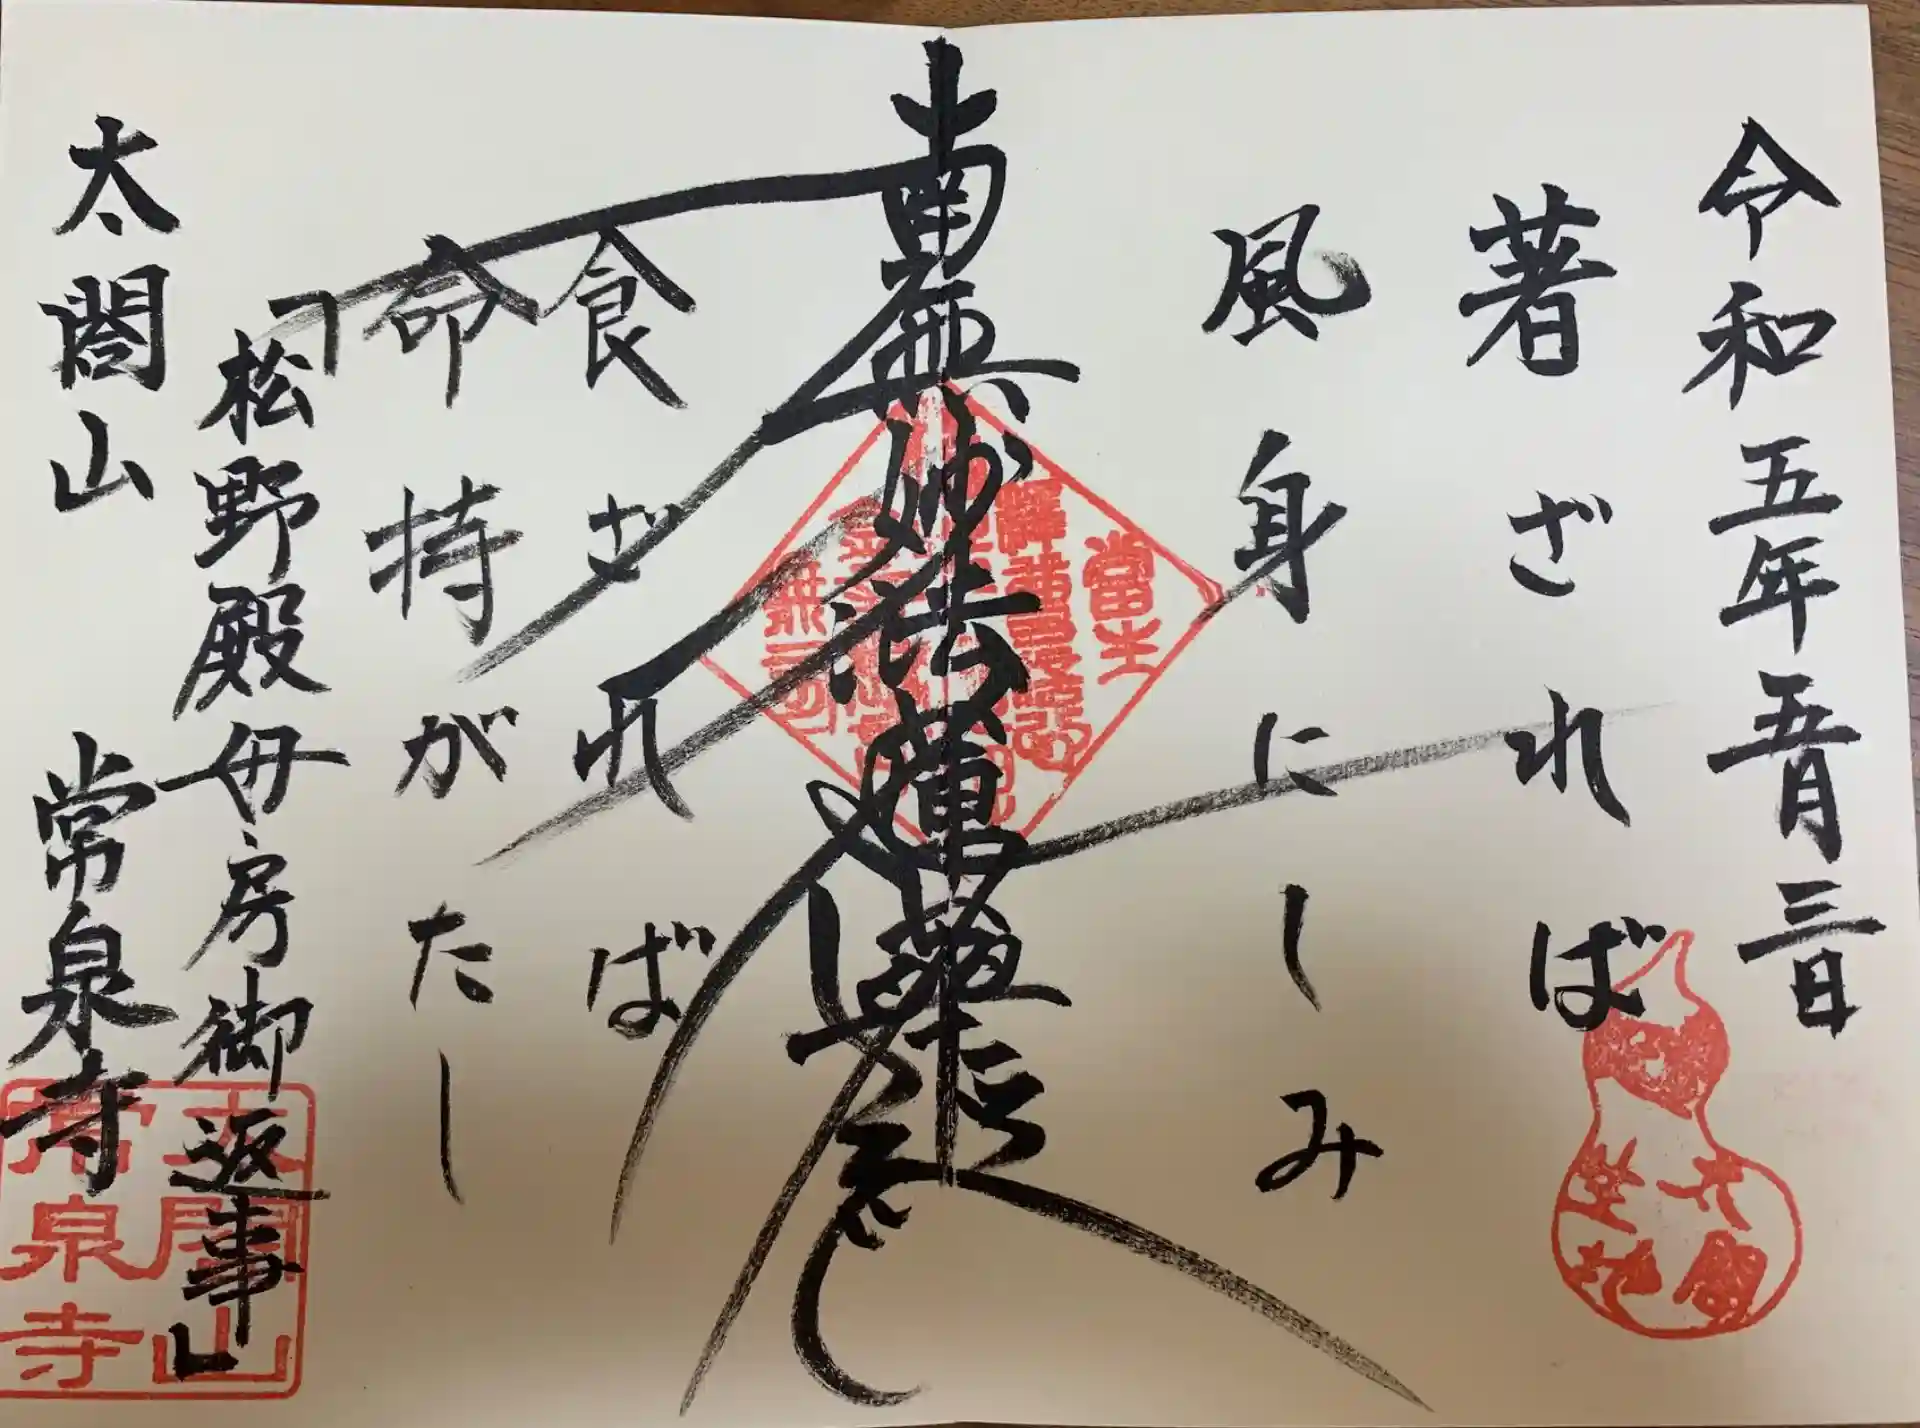 令和五年五月三日
著ざれば
風身にしみ
南無妙法蓮華経
食ざれば
命持がたし
「松野殿母房御返事」
太閤山 常泉寺
當生
太閤
生地
太閤山
常泉寺